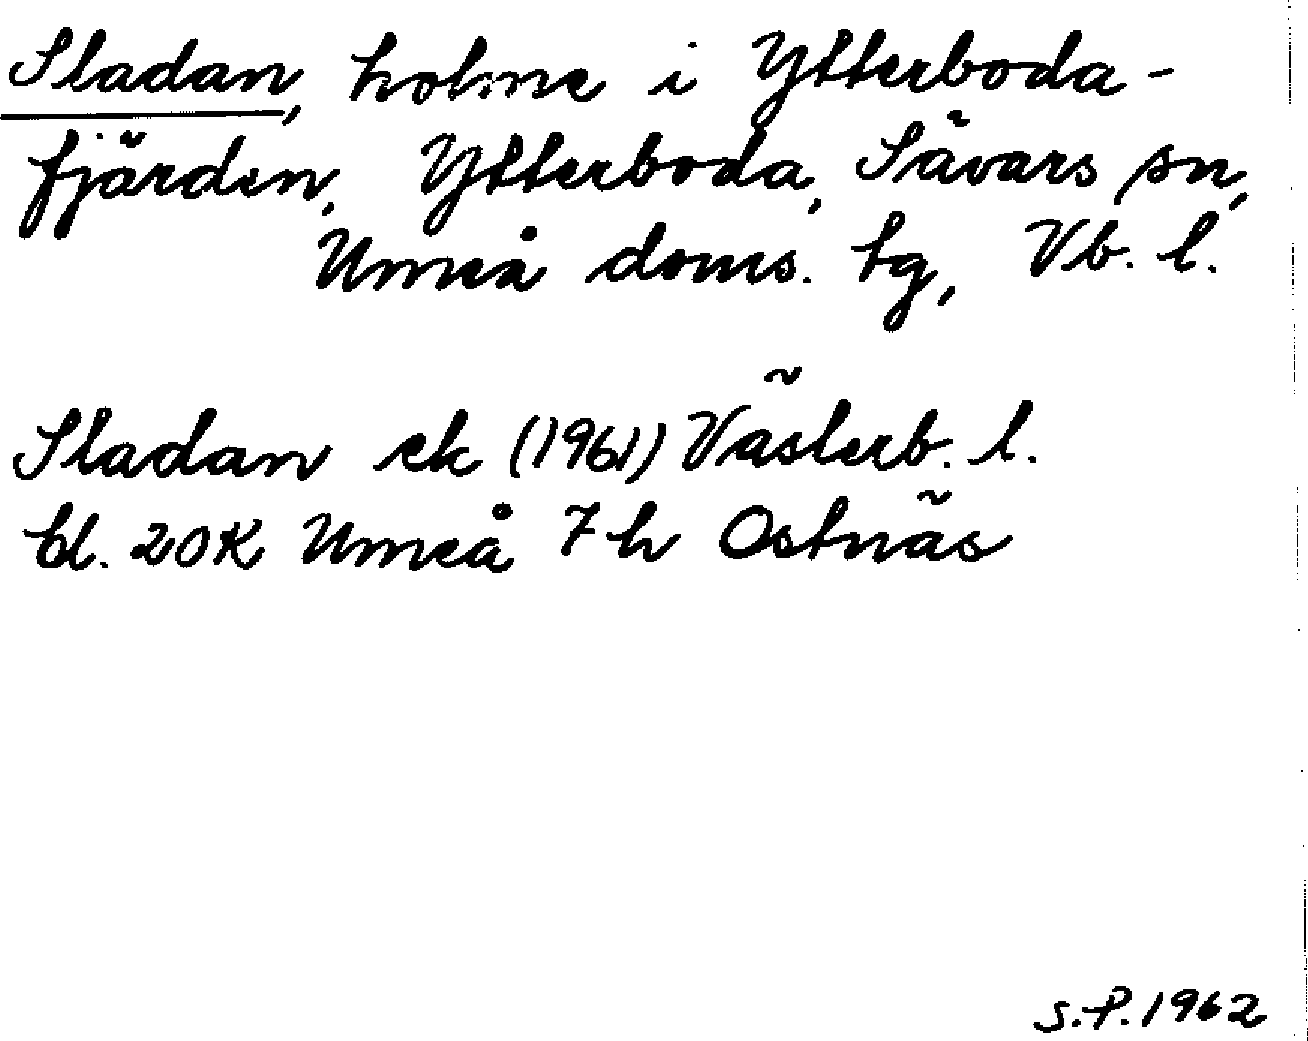 Sladan, holme i Ytterboda-
fjärden, Ytterboda, Sävars sn,
Umeå doms. tg, Vb. l.
Sladan ek (1961) Västerb. l.
bl. 20K Umeå 7h Ostnäs
S.P. 1962